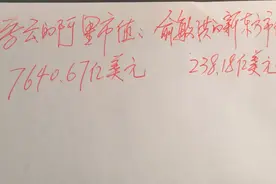 马云的阿里市值: 俞敏洪的新东方市
7640.67亿美元 238.18亿美元